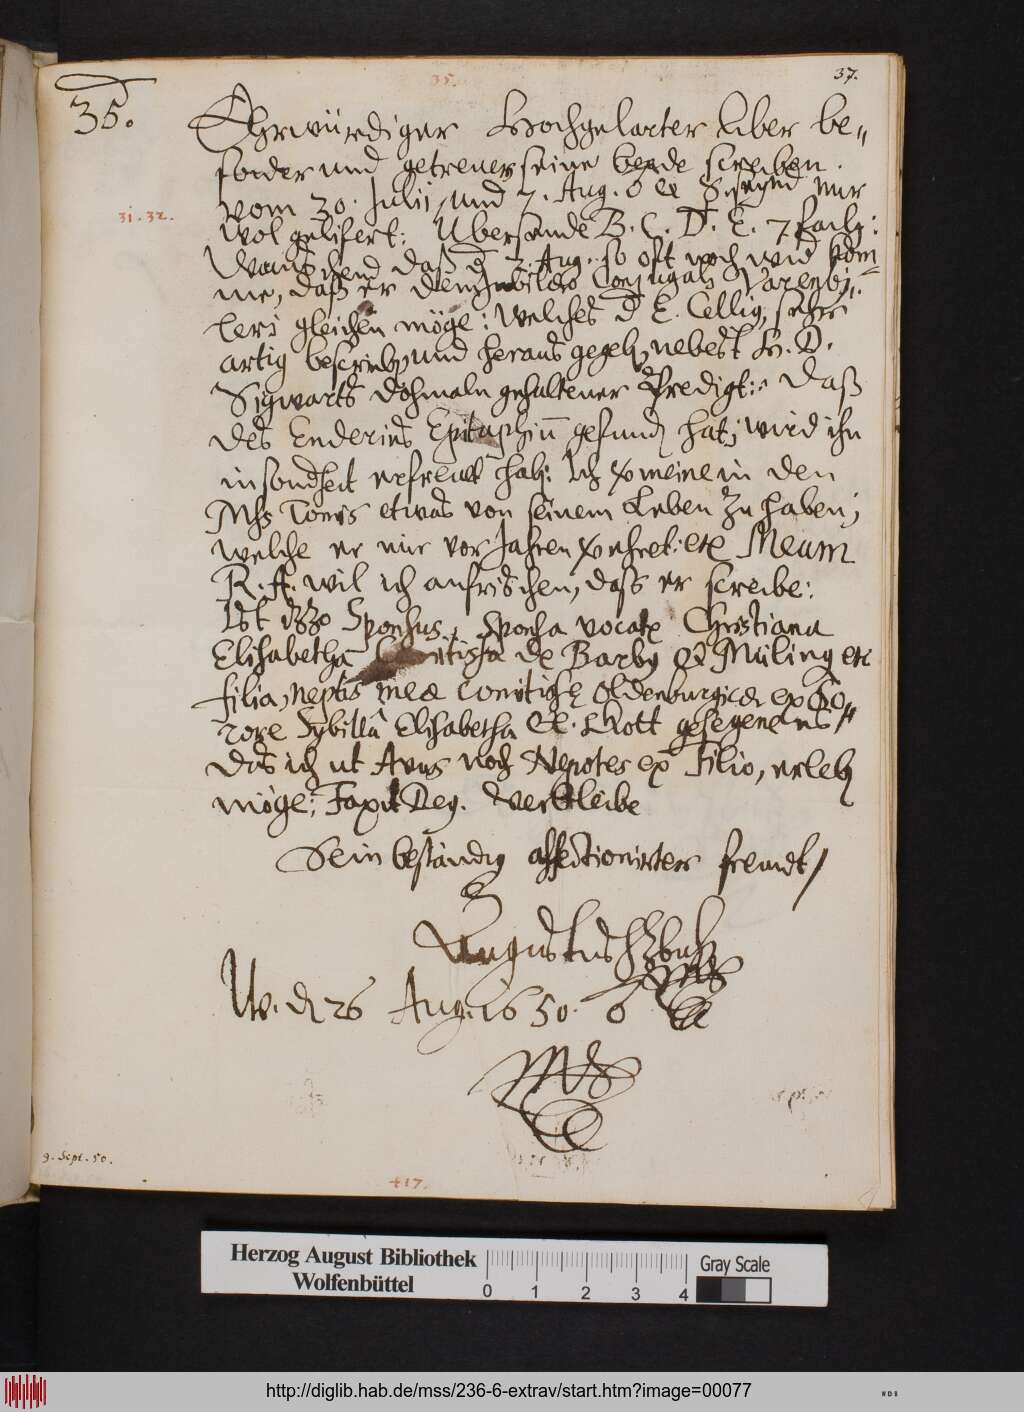 37.
35.
35.
Ehrwürdiger Hochgelarter Liber be„
sonder und getrewer, seine beyde screiben
vom 30. Julii, und 7. Aug. seynd mir
31. 32.
wol gelifert: Ubersende B. C. D. E. 7fach:
Wünschend daß d 7. Aug. so oft noch wid kom„
me, daß er dem Jubilæo Conjugali Parentis
gleichen möge: welches d E. Cellig, sehr
artig bescrieb, und heraus gegeb, nebest H. D.
Sigwarts dohmaln gehaltener Predigt: Daß
des Enderius Epitaphiū gefund hat, wird ihn
insondheit erfreut hab: Ich vermeine in den
Mss Tomis etwas von seinem Leben zu haben;
welche er mir vor Jahren verehret: etc Meum
R. A. wil ich anfrischen, dass er screibe:
Ist Sponsus, Sponsa vocatr Christiana
Elisabetha Comitissa de Barby & Müling etc
filia, neptis meæ Comitissæ Oldenburgicæ ex So„
rore Sybilla Elisabetha &. Gott gesegene es„
das ich ut Avus noch Nepotes ex Filio, erleb
möge; Faxit Deus. Verbleibe
Sein beständig affectionirter freund,
Augustus HZBuL
W. d 26 Aug. 1650.
9. Sept. 50.
417.
Herzog August Bibliothek
Wolfenbüttel
0 1 2 3 4
Gray Scale
http://diglib.hab.de/mss/236-6-extrav/start.htm?image=00077